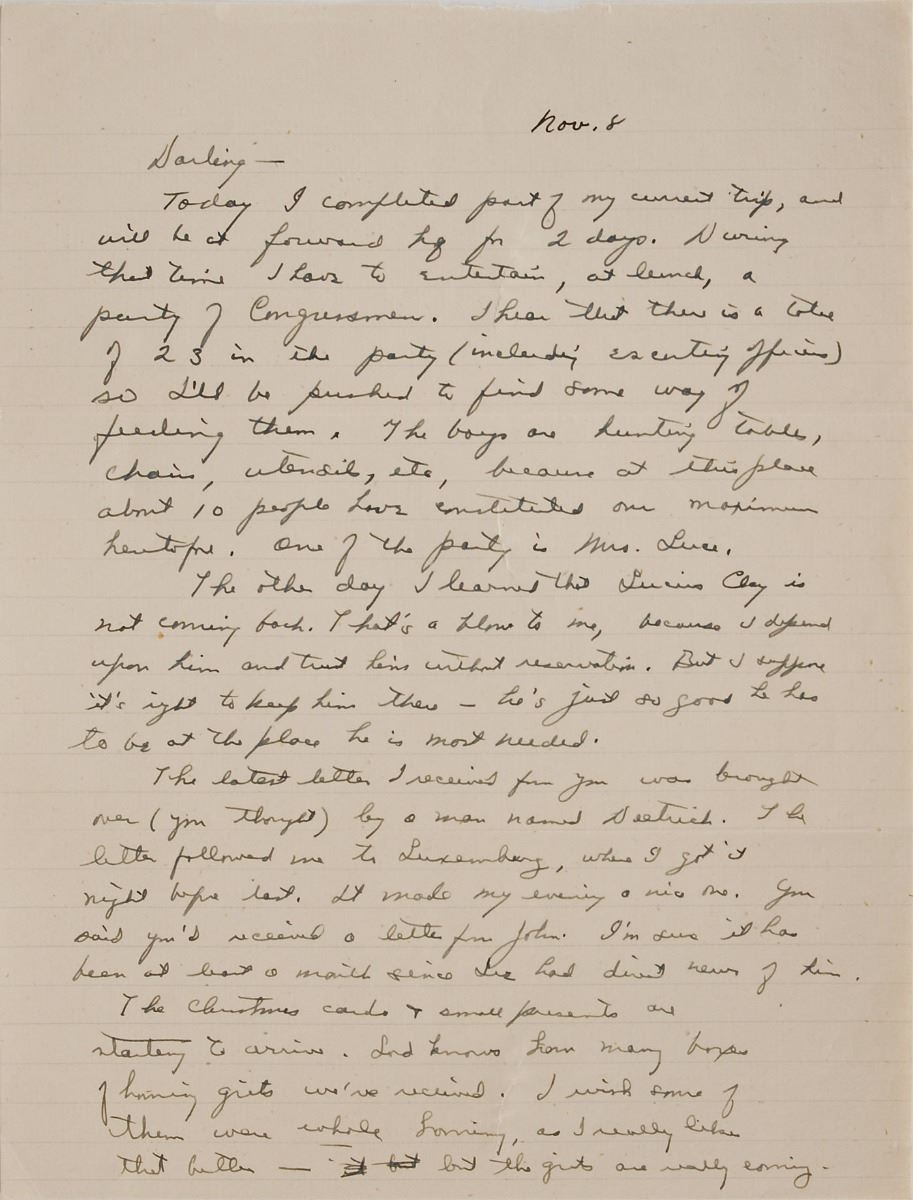 Nov. 8
Darling —
Today I completed part of my current trip, and
will be at forward hq for 2 days. During
that time I have to entertain, at lunch, a
party of Congressmen. I hear that there is a total
of 23 in the party (including escorting officers)
so I'll be pushed to find some way of
feeding them. The boys are hunting tables,
chairs, utensils, etc, because at this place
about 10 people have constituted our maximum
heretofore. One of the party is Mrs. Luce.
The other day I learned that Lucius Clay is
not coming back. That's a blow to me, because I depend
upon him and trust him without reservation. But I suppose
it's right to keep him there — he's just so good he has
to be at the place he is most needed.
The latest letter I received from you was brought
over (you thought) by a man named Deetrich. The
letter followed me to Luxemburg, where I got it
night before last. It made my evening a nice one. You
said you'd received a letter from John. I'm sure it has
been at least a month since I've had direct news of him.
The Christmas cards & small presents are
starting to arrive. Lord knows how many boxes
of hominy grits we've received. I wish some of
them were whole hominy, as I really like
that better — but the grits are really coming.